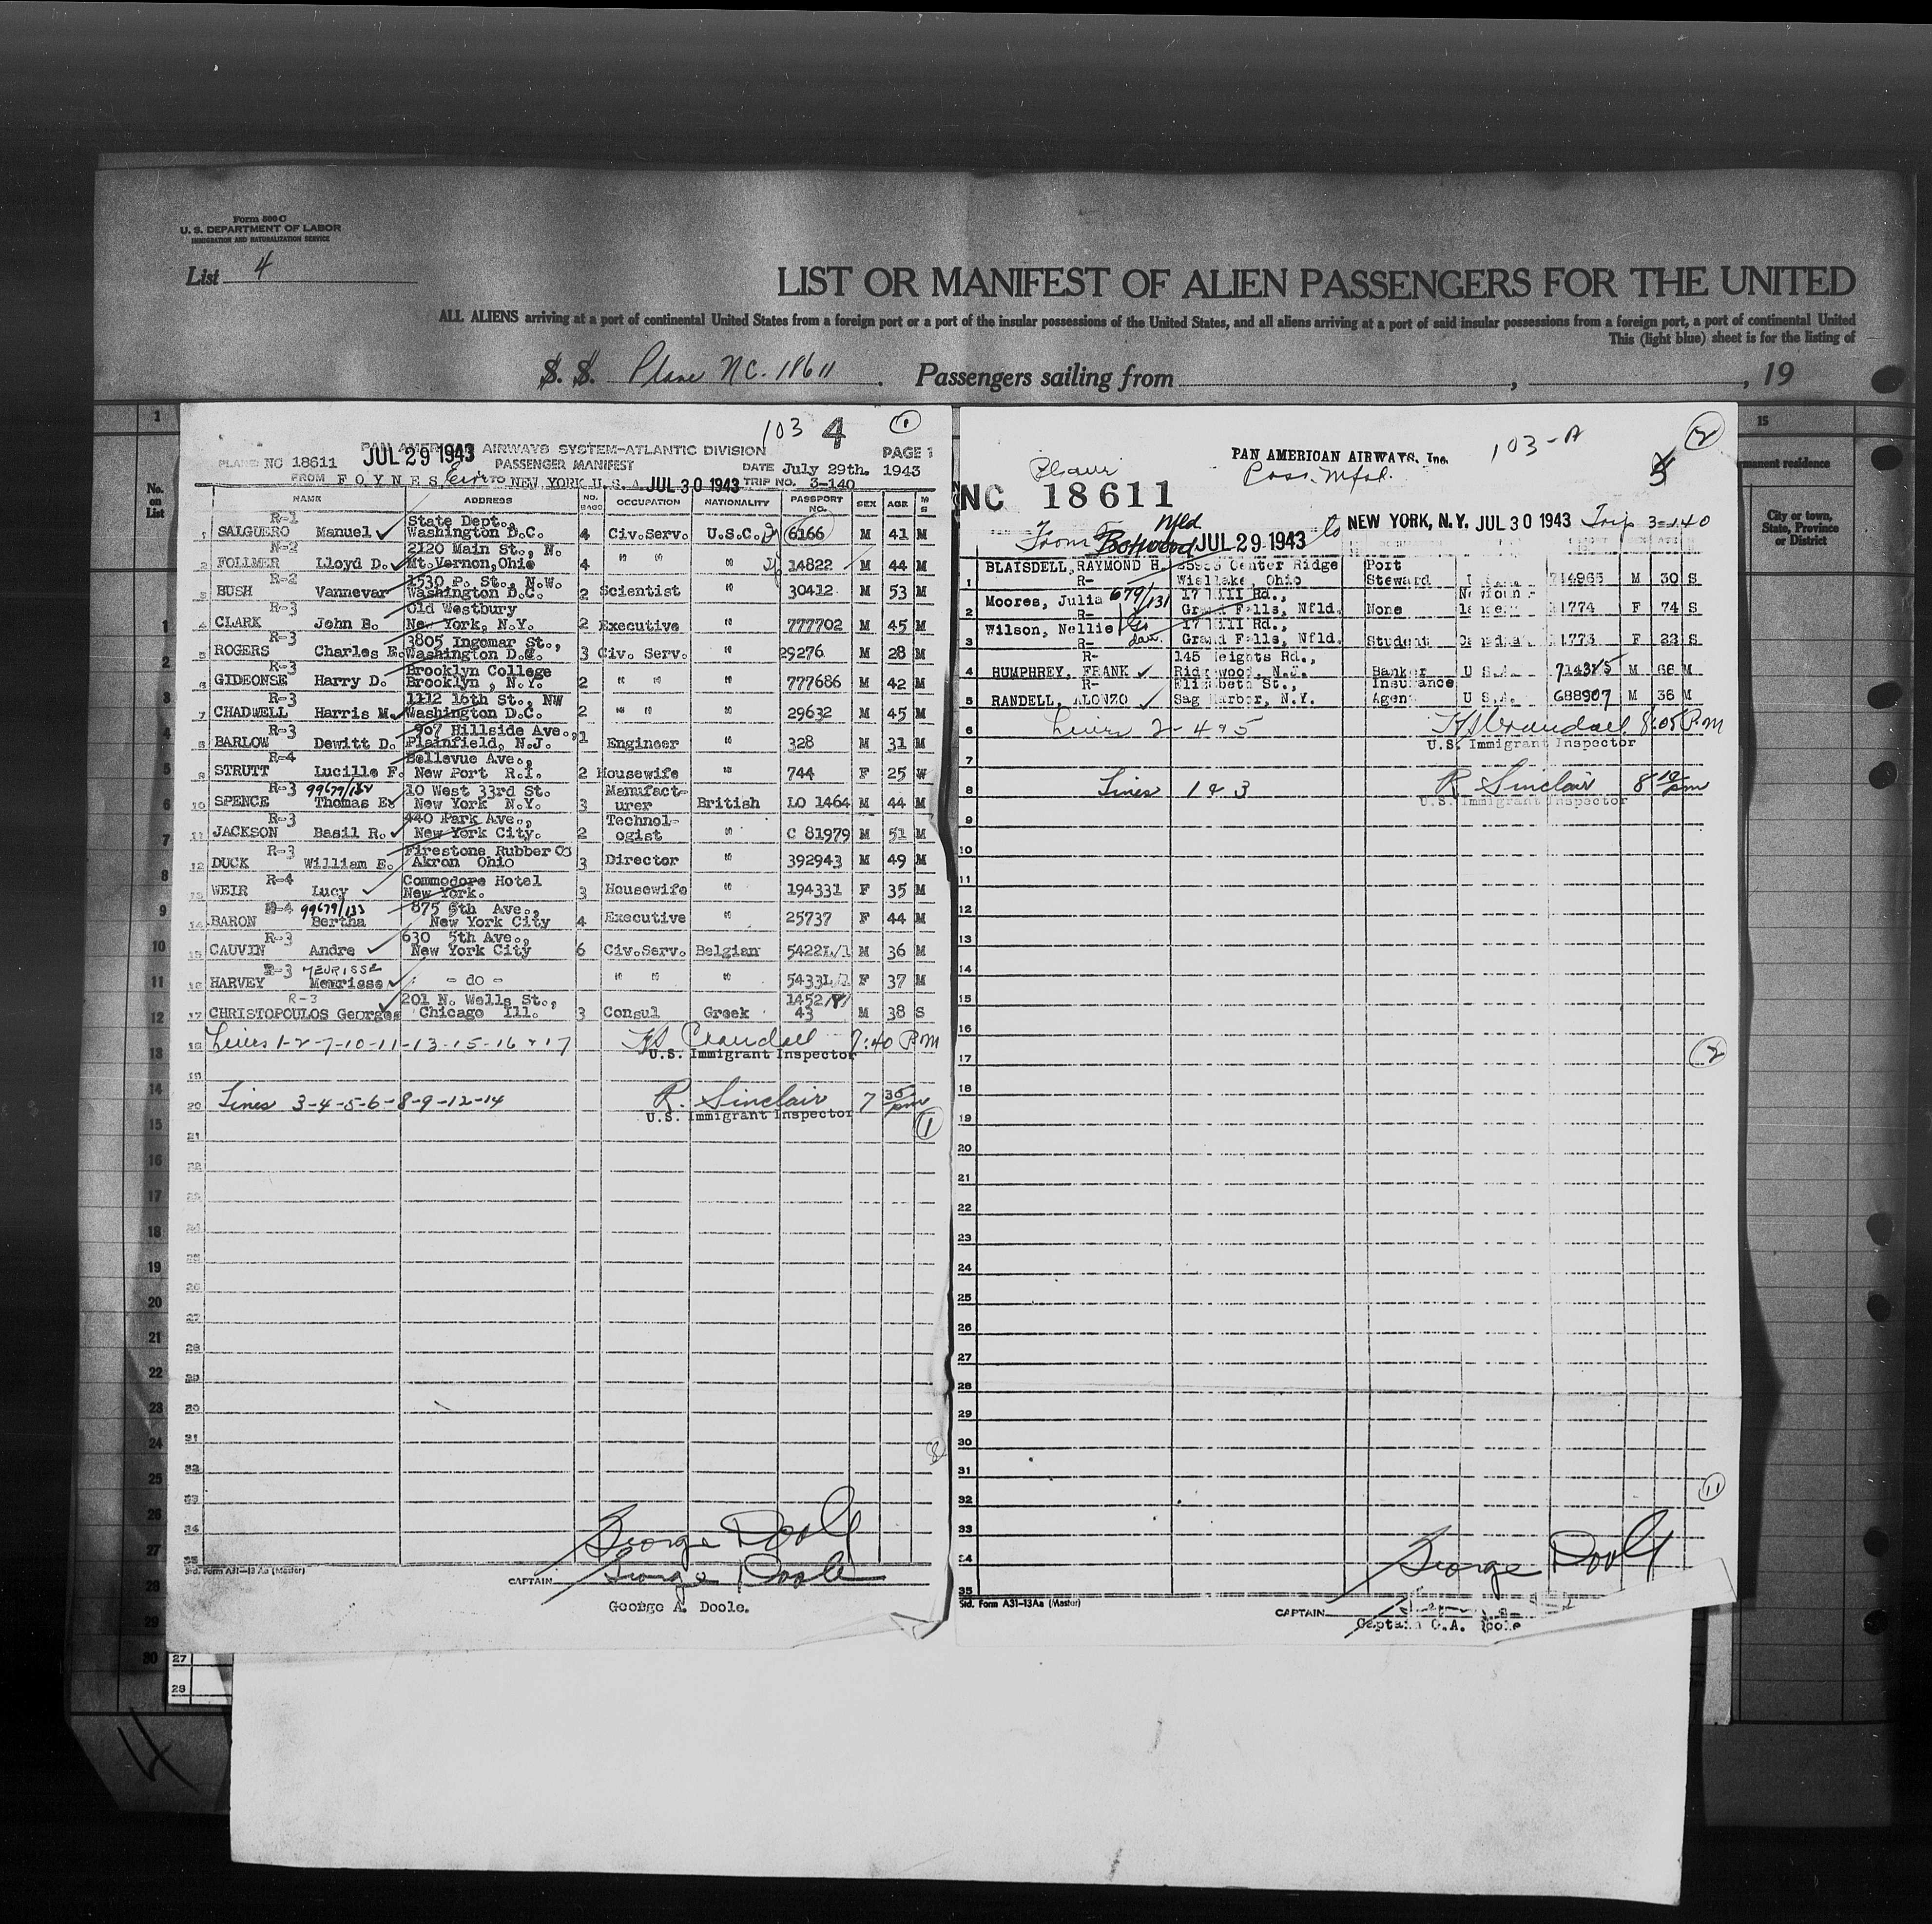 Form 500 C
U. S. DEPARTMENT OF LABOR
IMMIGRATION AND NATURALIZATION SERVICE
List 4
LIST OR MANIFEST OF ALIEN PASSENGERS FOR THE UNITED
ALL ALIENS arriving at a port of continental United States from a foreign port or a port of the insular possessions of the United States, and all aliens arriving at a port of said insular possessions from a foreign port, a port of continental United
This (light blue) sheet is for the listing of
S. S. Plane NC. 18611. Passengers sailing from , , 19
1
No. on List
15
rmanent residence
City or town, State, Province or District
103 4 1
PAN AMERICAN AIRWAYS SYSTEM-ATLANTIC DIVISION PAGE 1
PLANE NC 18611 JUL 29 1943 PASSENGER MANIFEST DATE July 29th. 1943
FROM FOYNES, Eire TO NEW YORK U.S.A. JUL 30 1943 TRIP NO. 3-140
NAME ADDRESS NO. BAGS OCCUPATION NATIONALITY PASSPORT NO. SEX AGE M S
R-1 State Dept.,
1 SALGUERO Manuel Washington D.C. 4 Civ.Serv. U.S.C. 6166 M 41 M
N-2 2120 Main St., N.
2 FOLLMER Lloyd D. Mt.Vernon,Ohio 4 " " " 14822 M 44 M
R-2 1530 P. St., N.W.
3 BUSH Vannevar Washington D.C. 2 Scientist " 30412 M 53 M
R-3 Old Westbury
4 CLARK John B. New York, N.Y. 2 Executive " 777702 M 45 M
R-3 3805 Ingomar St.,
5 ROGERS Charles E. Washington D.C. 3 Civ. Serv. " 29276 M 28 M
R-3 Brooklyn College
6 GIDEONSE Harry D. Brooklyn , N.Y. 2 " " " 777686 M 42 M
R-3 1112 16th St., NW
7 CHADWELL Harris M. Washington D.C. 2 " " " 29632 M 45 M
R-3 907 Hillside Ave.,
8 BARLOW Dewitt D. Plainfield, N.J. 1 Engineer " 328 M 31 M
R-4 Bellevue Ave.,
9 STRUTT Lucille F. New Port R.I. 2 Housewife " 744 F 25 W
R-3 99679/132 10 West 33rd St. Manufact-
10 SPENCE Thomas E. New York N.Y. 3 urer British LO 1464 M 44 M
R-3 440 Park Ave., Technol-
11 JACKSON Basil R. New York City. 2 ogist " C 81979 M 51 M
R-3 Firestone Rubber Co
12 DUCK William E. Akron Ohio 3 Director " 392943 M 49 M
R-4 Commodore Hotel
13 WEIR Lucy New York. 3 Housewife " 194331 F 35 M
R-4 99679/133 875 5th Ave.,
14 BARON Bertha New York City 4 Executive " 25737 F 44 M
R-3 630 5th Ave.,
15 CAUVIN Andre New York City 6 Civ.Serv. Belgian 5422L/1 M 36 M
R-3 MEURISSE
16 HARVEY Meurisse - do - " " " 5433L F 37 M
R-3 201 N. Wells St., 1452
17 CHRISTOPOULOS Georges Chicago Ill. 3 Consul Greek 43 M 38 S
18 Lines 1-2-7-10-11-13-15-16 & 17 HS Crandall 7:40 P.M
U.S. Immigrant Inspector
20 Lines 3-4-5-6-8-9-12-14 R. Sinclair 7 35 pm
U.S. Immigrant Inspector
1
George Doole
CAPTAIN George Doole
George A. Doole.
Std. Form A31-13 Aa (Master)
103-A 2
PAN AMERICAN AIRWAYS, Inc.
Pass. Mfst.
NC 18611
From Botwood Nfld JUL 29 1943 to NEW YORK, N.Y. JUL 30 1943 Trip 3-140
BLAISDELL, RAYMOND H. Center Ridge Port
1 R- Westlake, Ohio Steward 714965 M 30 S
Moores, Julia 679/131 17 Hill Rd., Newfoun-
2 R- Grand Falls, Nfld. None 1774 F 74 S
Wilson, Nellie 17 Hill Rd.,
3 R- Grand Falls, Nfld. Student Canadian 1773 F 22 S
R- 145 Heights Rd.,
4 HUMPHREY, FRANK Ridgewood, N.J. Banker U S.A. 714375 M 66 M
R- Elizabeth St., Insurance
5 RANDELL, ALONZO Sag Harbor, N.Y. Agent U S.A. 688907 M 36 M
6 Lines 2-4&5 HS Crandall 8:05 P.M
U.S. Immigrant Inspector
8 Lines 1 & 3 R Sinclair 8 10 pm
U.S. Immigrant Inspector
2
11
George Doole
CAPTAIN
Captain G.A. Doole
Std. Form A31-13Aa (Master)
27
28
4